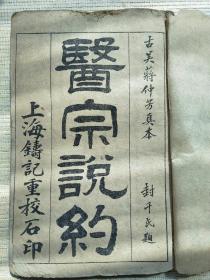 古吴蔣仲芳真本
醫宗說約
封千民題
上海鑄記重校石印